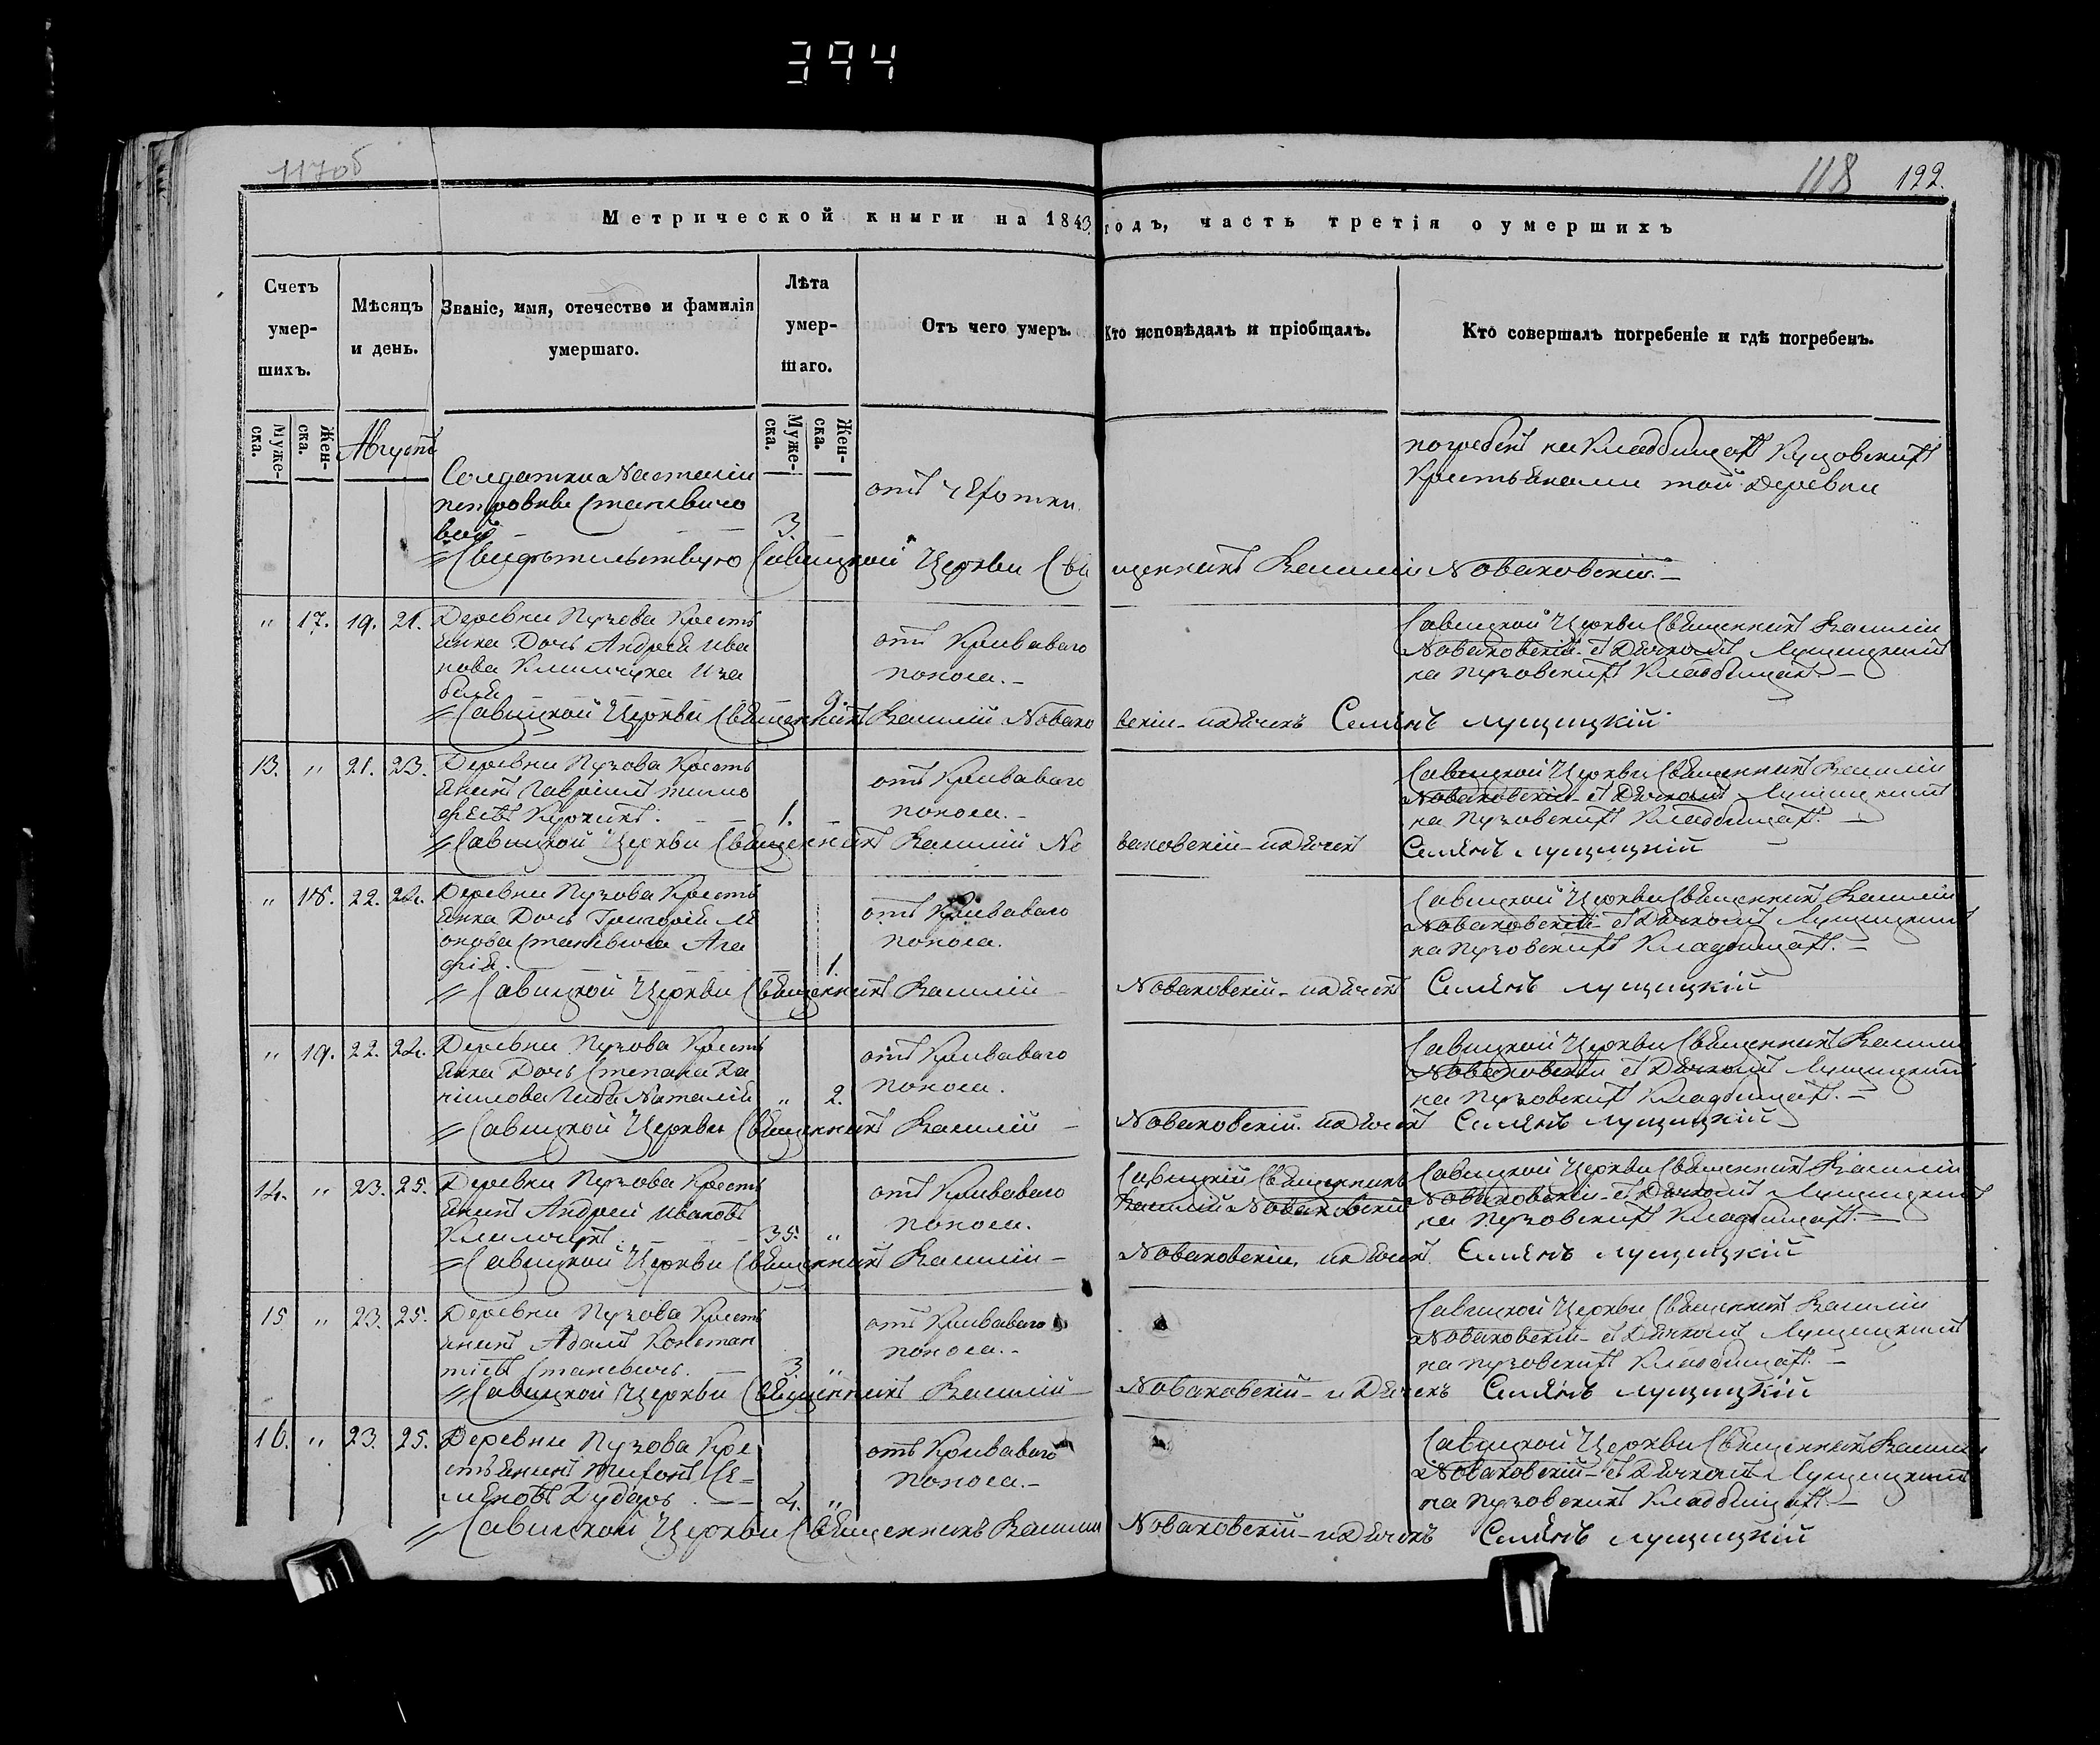 394
117об
118 122.
Метрической книги на 1843 годъ, часть третія о умершихъ
Счетъ умер-шихъ.
Мѣсяцъ и день.
Званіе, имя, отечество и фамилія умершаго.
Лѣта умер-шаго.
Отъ чего умеръ.
Кто исповѣдалъ и пріобщалъ.
Кто совершалъ погребеніе и гдѣ погребенъ.
Муже-ска.
Жен-ска.
Августъ
Муже-ска.
Жен-ска.
Солдатки Настасіи
петровны Станевичо
вой 3
отъ чахотки.
погребенъ на Кладбищахъ
Крестьянами той Деревни
Свидѣтельствую Савицкой Церкви Священникъ Василій Новаковскій.
" 17. 19. 21. Деревни Пузова Кресть
янка Дочь Андрея Ива
нова Климчука
9.
отъ Криваваго
поноса.
Савицкой Церкви Священникъ Василій
Новаковскій съ Дячкомъ Лущицкимъ
на Пузовскихъ Кладбищахъ
Савицкой Церкви Священникъ Василій Новаковскій и Дячекъ Семенъ Лущицкій
13. " 21. 23. Деревни Пузова Кресть
янинъ Гавріилъ Тимо
феевъ 1.
отъ Криваваго
поноса.
Савицкой Церкви Священникъ Василій
Новаковскій съ Дячкомъ Лущицкимъ
на Пузовскихъ Кладбищахъ.
Савицкой Церкви Священникъ Василій Новаковскій и Дячекъ Семенъ Лущицкій
" 18. 22. 24. Деревни Пузова Кресть
янка Дочь Григорія Ле
онова Станевича Ага
фія. 1.
отъ Криваваго
поноса.
Савицкой Церкви Священникъ Василій
Новаковскій съ Дячкомъ Лущицкимъ
на Пузовскихъ Кладбищахъ.
Савицкой Церкви Священникъ Василій Новаковскій и Дячекъ Семенъ Лущицкій
" 19. 22. 24. Деревни Пузова Кресть
янка Дочь Степана Да
ніилова Наталія " 2.
отъ Криваваго
поноса.
Савицкой Церкви Священникъ Василій
Новаковскій съ Дячкомъ Лущицкимъ
на Пузовскихъ Кладбищахъ.
Савицкой Церкви Священникъ Василій Новаковскій и Дячекъ Семенъ Лущицкій
14. " 23. 25. Деревни Пузова Кресть
янинъ Андрей Ивановъ
Климчукъ 35. "
отъ Криваваго
поноса.
Савицкій Священникъ
Василій Новаковскій
Савицкой Церкви Священникъ Василій
Новаковскій съ Дячкомъ Лущицкимъ
на Пузовскихъ Кладбищахъ.
Савицкой Церкви Священникъ Василій Новаковскій и Дячекъ Семенъ Лущицкій
15 " 23. 25. Деревни Пузова Кресть
янинъ Адамъ Констан
тіевъ Станевичъ. 3. "
отъ Криваваго
поноса.
Савицкой Церкви Священникъ Василій
Новаковскій съ Дячкомъ Лущицкимъ
на Пузовскихъ Кладбищахъ.
Савицкой Церкви Священникъ Василій Новаковскій и Дячекъ Семенъ Лущицкій
16. " 23. 25. Деревни Пузова Кре
стьянинъ Тифонъ Се=
меновъ Дударь 4. "
отъ Криваваго
поноса.
Савицкой Церкви Священникъ Василій
Новаковскій съ Дячкомъ Лущицкимъ
на Пузовскихъ Кладбищахъ.
Савицкой Церкви Священникъ Василій Новаковскій и Дячекъ Семенъ Лущицкій